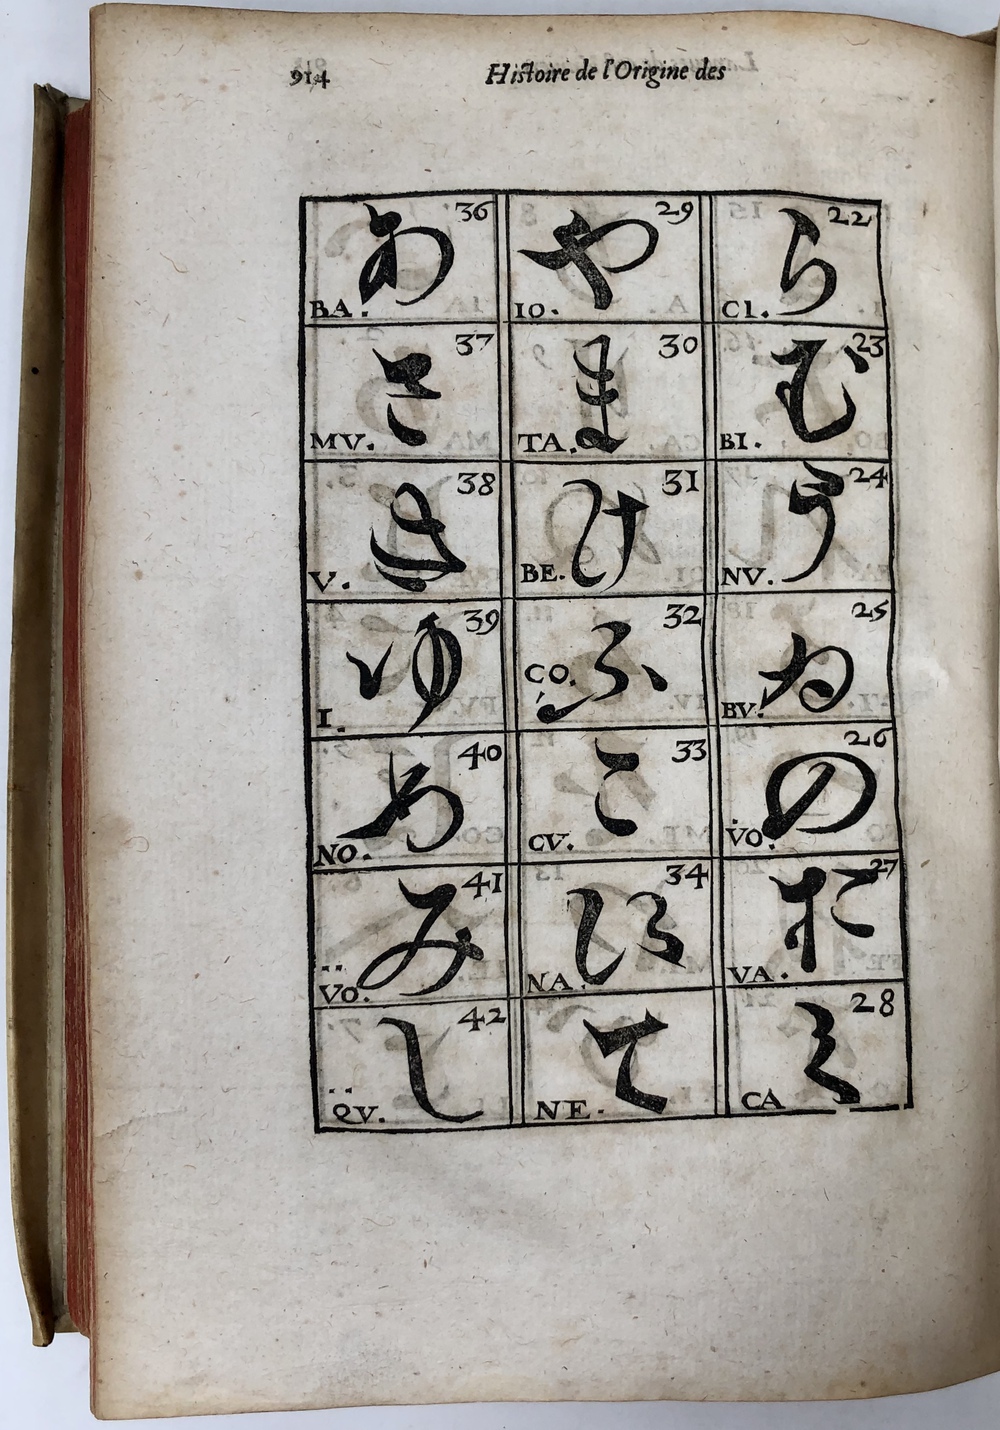 914
Histoire de l'Origine des
22
ら
CI.
23
む
BI.
24
う
NV.
25
ゐ
BV.
26
の
V̇O.
27
お
VA.
28
く
CA
29
や
IO.
30
ま
TA.
31
け
BE.
32
ふ
CO.
33
こ
CV.
34
え
NA.
て
NE.
36
あ
BA.
37
さ
MV.
38
き
V.
39
ゆ
I.
40
め
NO.
41
み
V̈O.
42
し
Q̈V.